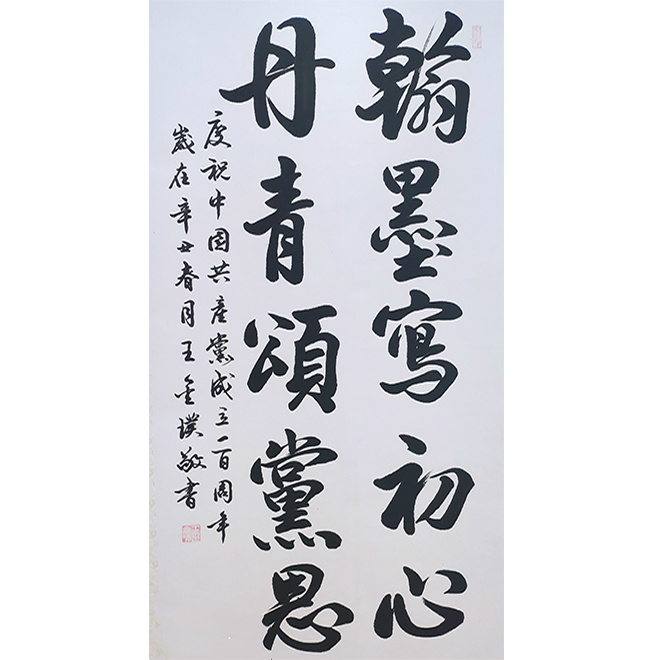 翰墨寫初心
丹青頌黨恩
慶祝中国共產黨成立一百周年
歲在辛丑春月王金璞敬書